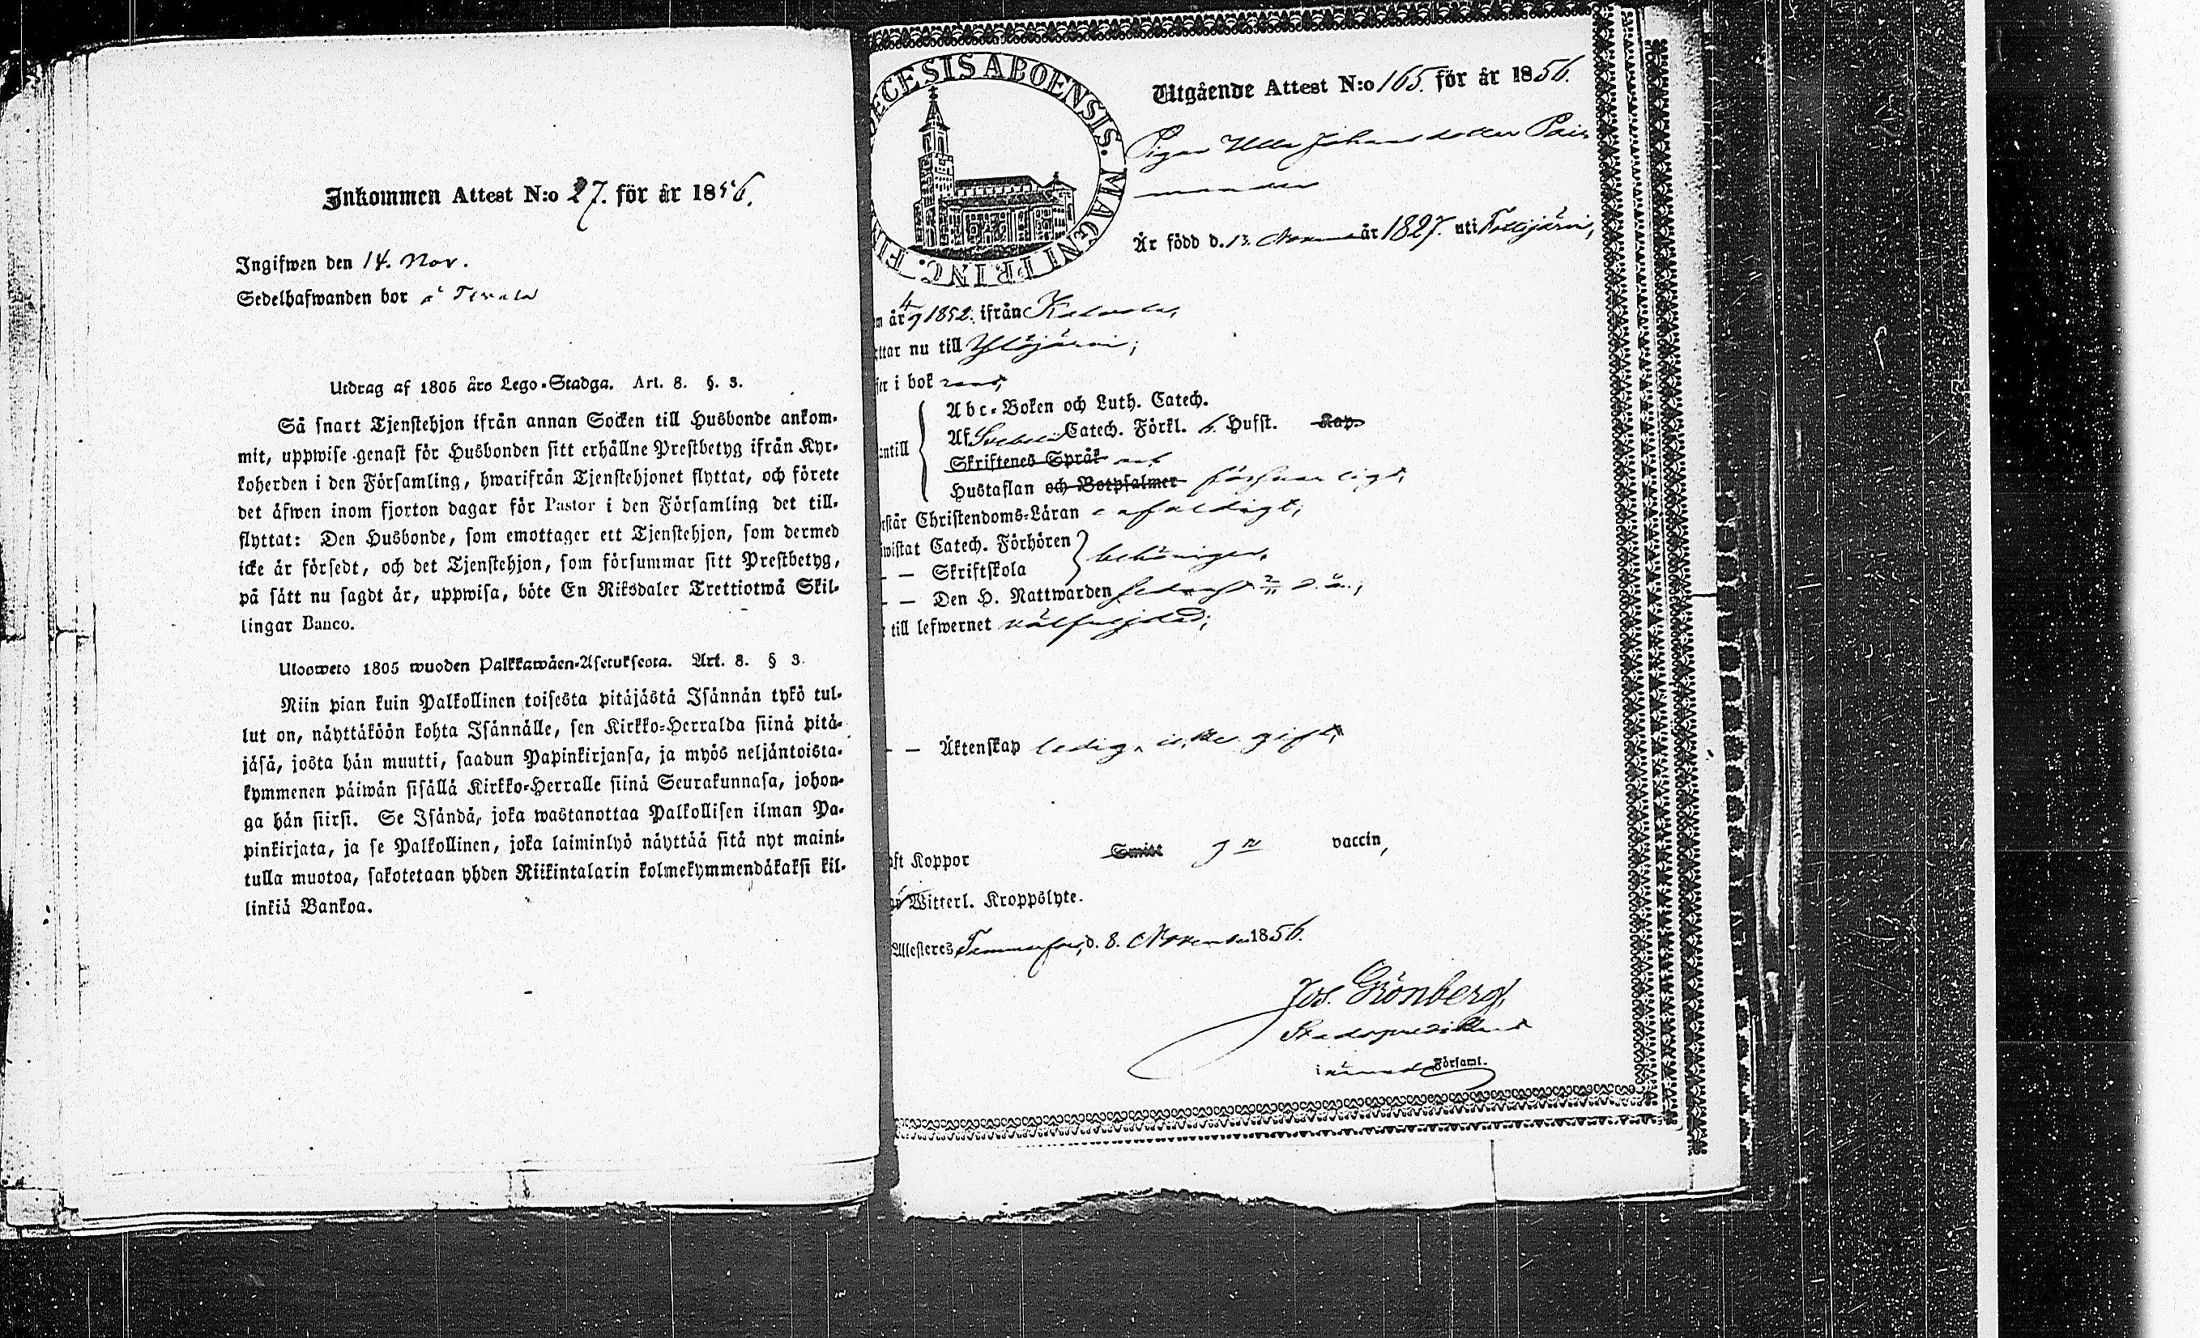 Inkommen Attest N:o 27. för år 1856.
Ingifwen den 14. Nov.
Sedelhafwanden bor å
Utdrag af 1805 års Lego-Stadga. Art. 8. §. 3.
Så snart Tjenstehjon ifrån annan Socken till Husbonde ankom-
mit, uppwise genast för Husbonden sitt erhållne Prestbetyg ifrån Kyr-
koherden i den Församling, hwarifrån Tjenstehjonet flyttat, och förete
det äfwen inom fjorton dagar för Pastor i den Församling det till-
flyttat: Den Husbonde, som emottager ett Tjenstehjon, som dermed
icke är försedt, och det Tjenstehjon, som försummar sitt Prestbetyg,
på sätt nu sagdt är, uppwisa, böte En Riksdaler Trettiotwå Skil-
lingar Banco.
Ulosweto 1805 wuoden Palkkawäen-Asetuksesta. Art. 8. § 3.
Niin pian kuin Palkollinen toisesta pitäjästä Isännän tykö tul-
lut on, näyttäköön kohta Isännälle, sen Kirkko-Herralda siinä pitä-
jäsä, josta hän muutti, saadun Papinkirjansa, ja myös neljäntoista-
kymmenen päiwän sisällä Kirkko-Herralle siinä Seurakunnasa, johon-
ga hän siirsi. Se Isändä, joka wastanottaa Palkollisen ilman Pa-
pinkirjata, ja se Palkollinen, joka laiminlyö näyttää sitä nyt maini-
tulla muotoa, sakotetaan yhden Riikintalarin kolmekymmendäkaksi kil-
linkiä Bankoa.
ECESIS ABOENSIS. MAGNI PRINC. FIN
Utgående Attest N:o 165. för år 1856.
Pigan Ulla Johansdotter
Är född d. 13. November år 1827. uti Tottijärvi,
m år 4/9 1852. ifrån Kalvola,
ttar nu till Ylöjärvi;
ser i bok
Abc-Boken och Luth. Catech.
Af Svebelii Catech. Förkl. 6. Hufst. Kap.
ntill
Skriftenes Språk
Hustaflan och Botpsalmer försvarligt,
står Christendoms-Läran enfaldigt;
wistat Catech. Förhören
behörigen,
– – Skriftskola
– – Den H. Nattwarden
till lefwernet välfrejdad;
– – Äktenskap ledig,
ft Koppor Smitt vaccin,
Witterl. Kroppslyte.
Attesteres Tammerfors, d. 8. November 1856.
Jos. Grönberg,
i Församl.